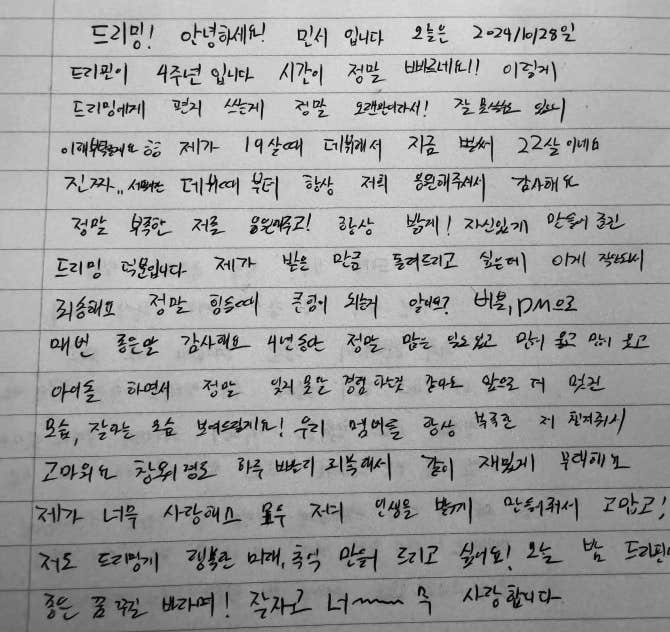 드리밍! 안녕하세요! 민서 입니다 오늘은 2024/10/28일
드리핀이 4주년 입니다 시간이 정말 빠르네요!! 이렇게
드리밍에게 편지 쓰는게 정말 오랜만이라서! 잘 못쓸수도 있으니
이해부탁할게요 ㅎㅎ 제가 19살때 데뷔해서 지금 벌써 22살 이네요
진짜.. 데뷔때 부터 항상 저희 응원해주셔서 감사해요
정말 부족한 저를 응원해주고! 항상 밝게! 자신있게 만들어 준건
드리밍 덕분입니다 제가 받은 만큼 돌려드리고 싶은데 이게 작아보여서
죄송해요 정말 힘들때 큰힘이 되는거 알아요? 버블, DM으로
매번 좋은말 감사해요 4년동안 정말 많은 일도 있고 많이 울고 많이 웃고
아이돌 하면서 정말 잊지 못할 경험 하는것 같아요 앞으로 더 멋진
모습, 잘하는 모습 보여드릴게요! 우리 멤버들 항상 부족한 저 챙겨줘서
고마워요 창욱이형도 하루 빨리 회복해서 같이 재밌게 무대해요
제가 너무 사랑해요 모두 저의 인생을 밝게 만들어줘서 고맙고!
저도 드리밍게 행복한 미래, 추억 만들어 드리고 싶어요! 오늘 밤 드리핀
좋은 꿈 꾸길 바라며! 잘자고 너~~~무 사랑합니다.